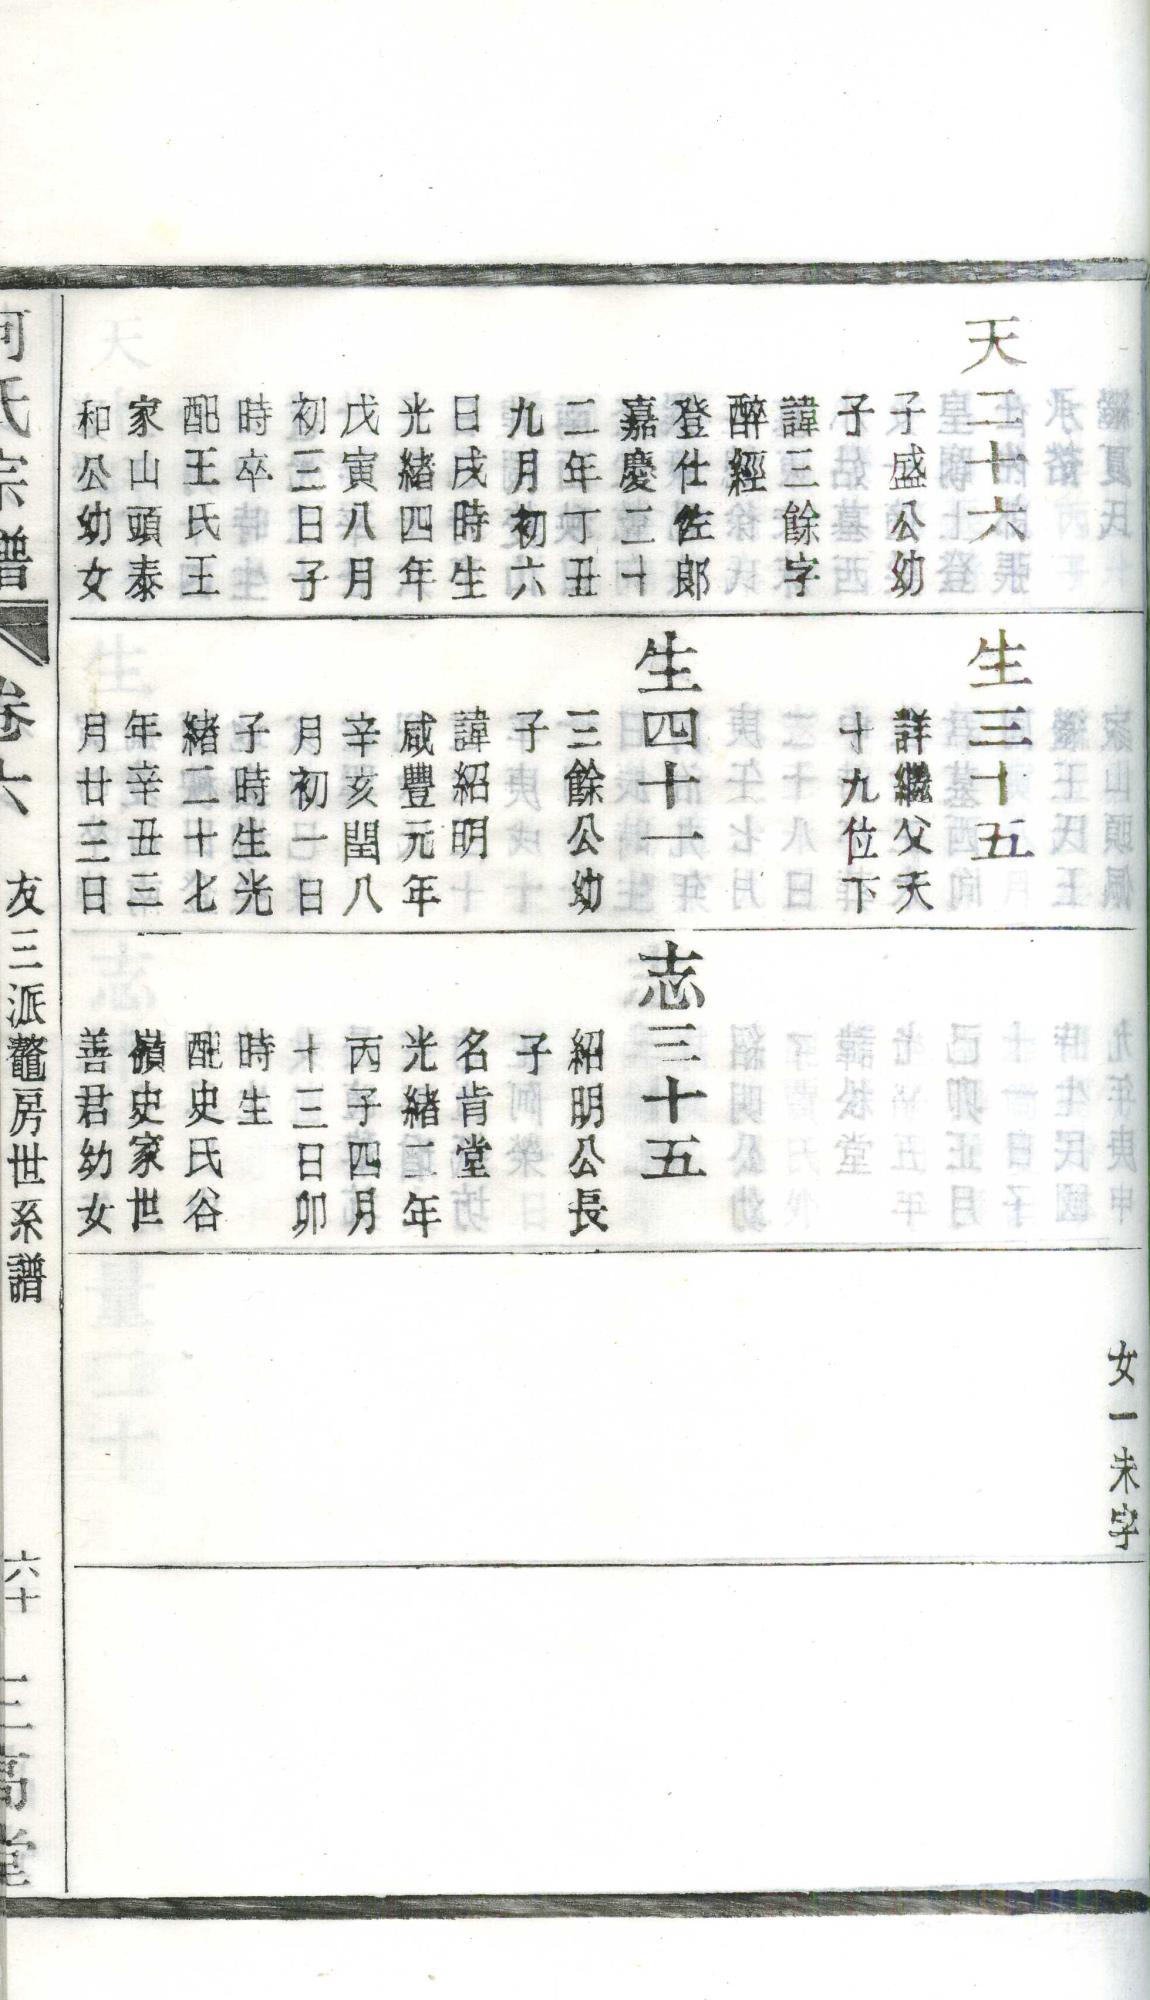 天二十六
子盛公幼
子
諱三餘字
醉經
登仕佐郎
嘉慶二十
二年丁丑
九月初六
日戌時生
光緒四年
戊寅八月
初三日子
時卒
配王氏王
家山頭泰
和公幼女
生三十五
詳繼父天
十九位下
生四十一
三餘公幼
子
諱紹明
咸豐元年
辛亥閏八
月初一日
子時生光
緒二十七
年辛丑三
月廿三日
志三十五
紹明公長
子
名肯堂
光緒二年
丙子四月
十三日卯
時生
配史氏谷
嶺史家世
善君幼女
女一未字
何氏宗譜
卷六
友三派鼇房世系譜
六十
三高堂